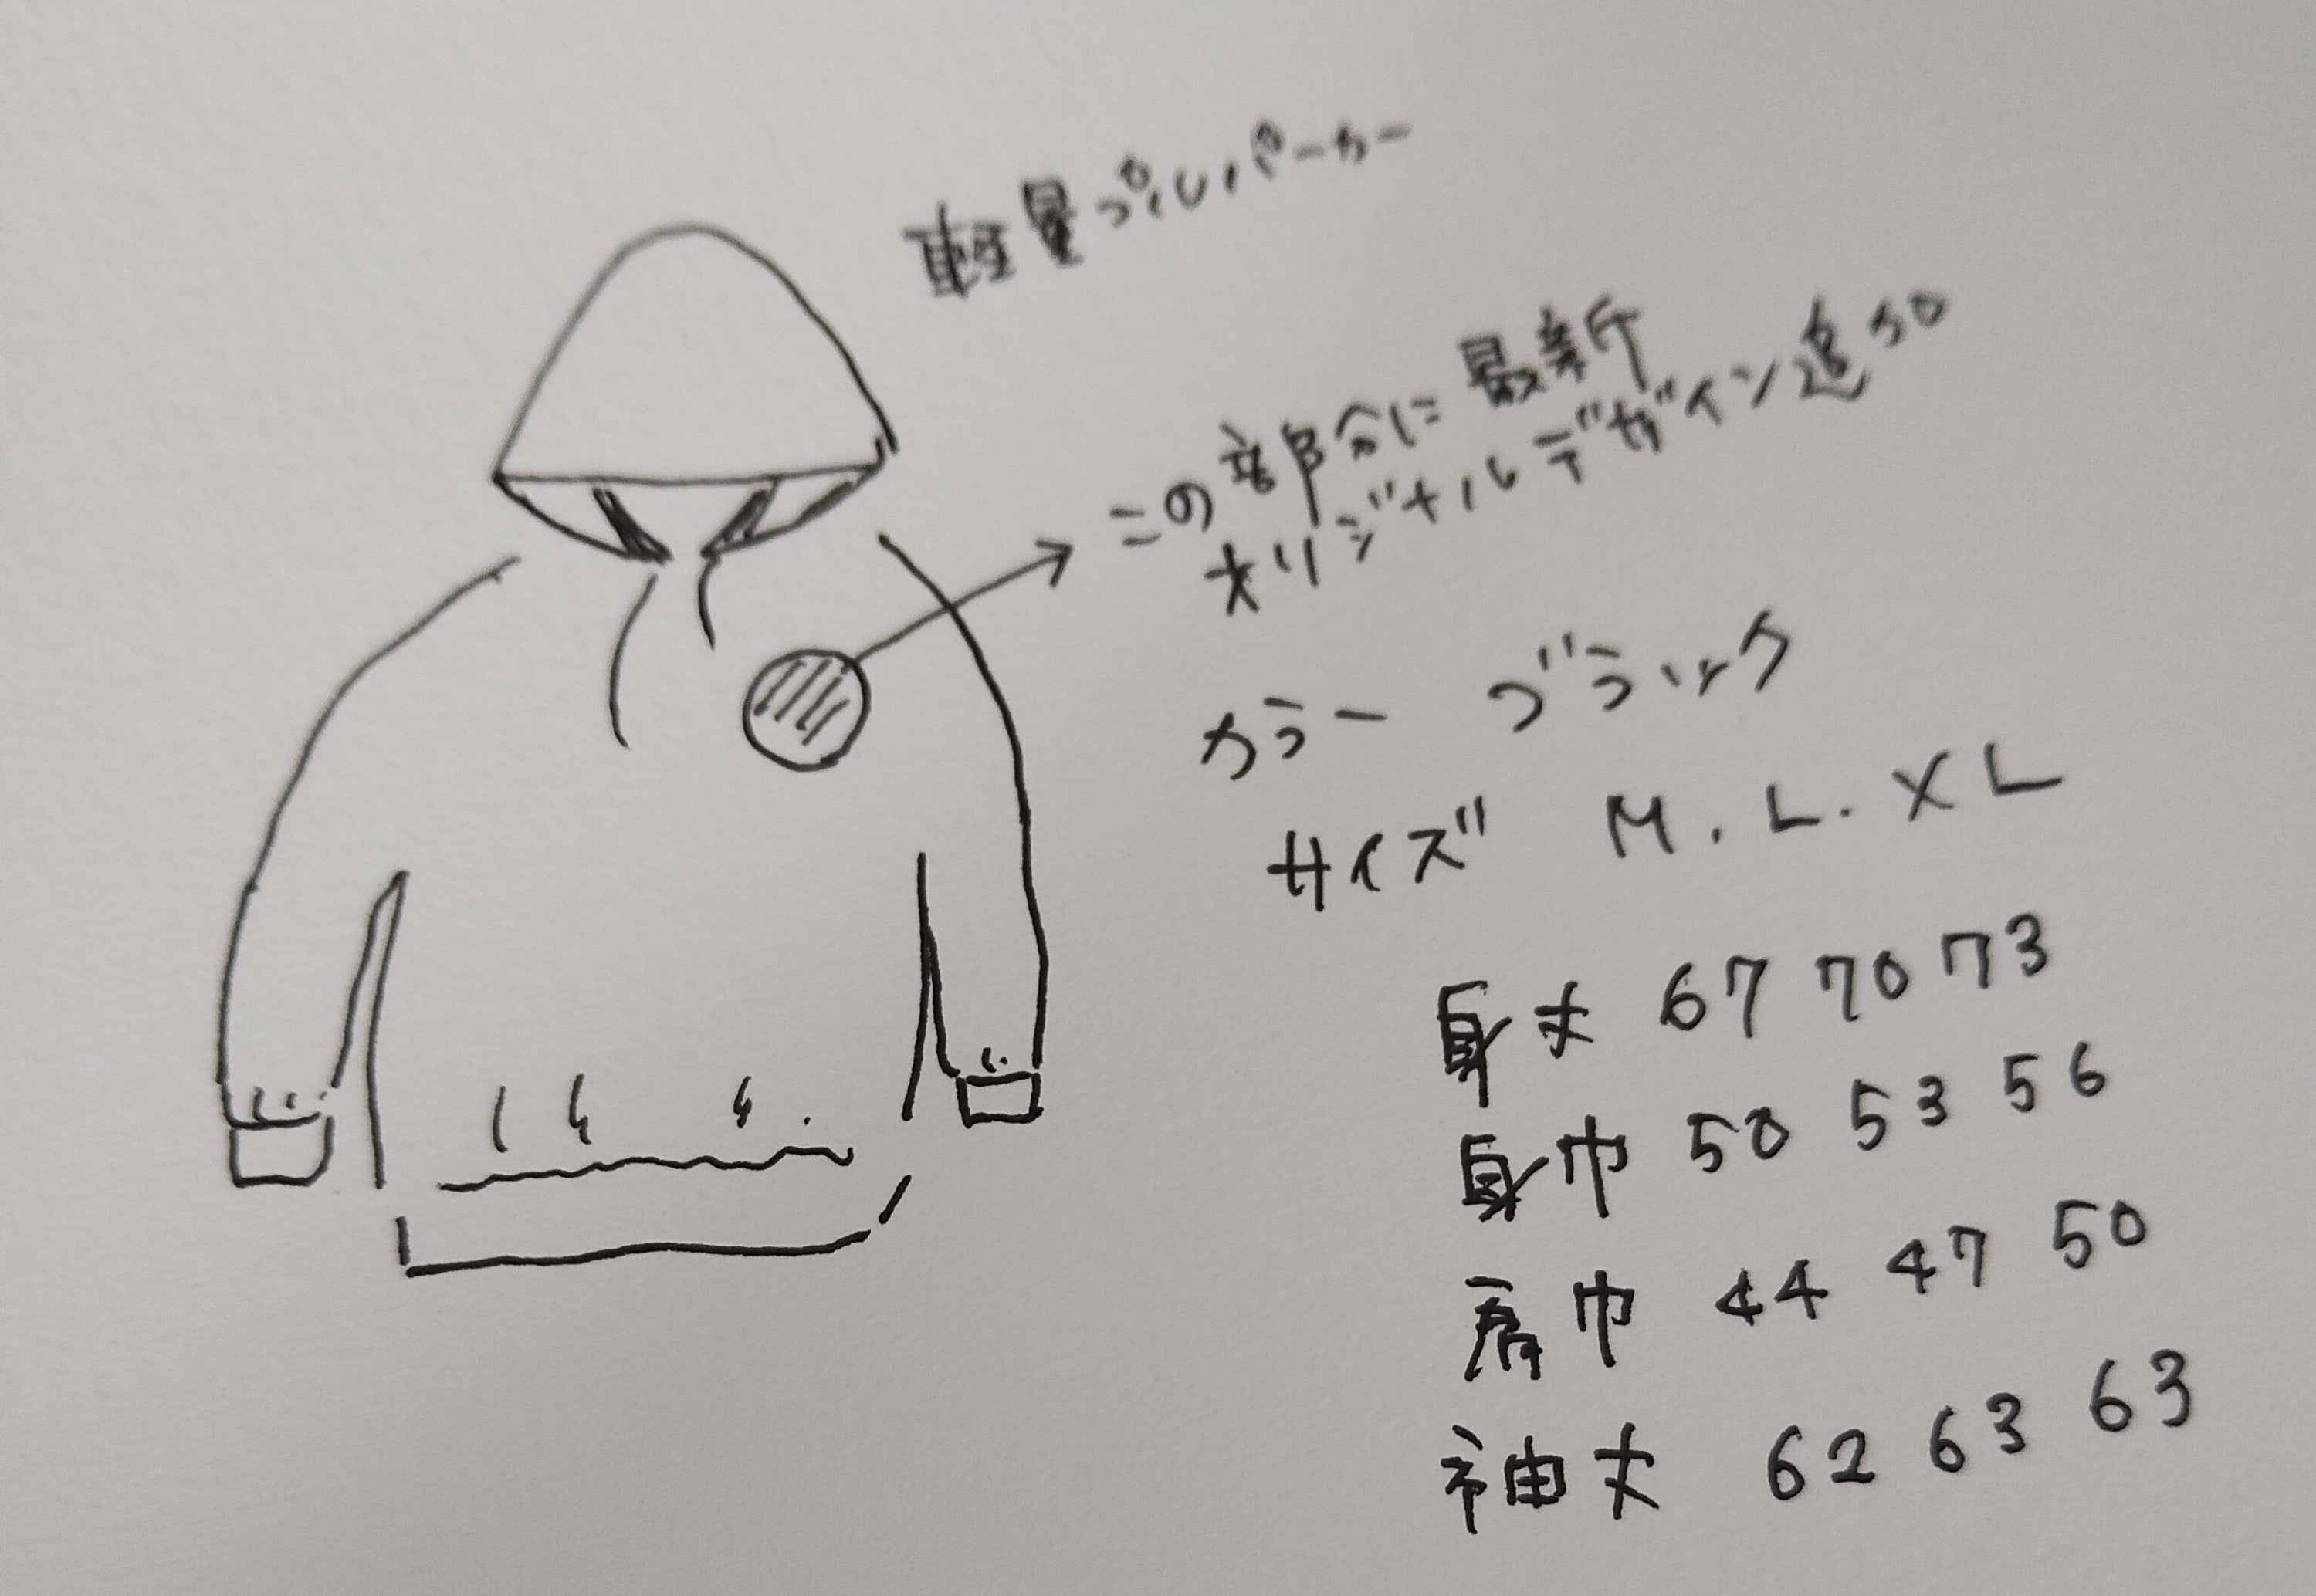 軽量プルパーカー
この部分に最新
オリジナルデザイン追加
カラー ブラック
サイズ M. L. XL
身丈 67 70 73
身巾 50 53 56
肩巾 44 47 50
袖丈 62 63 63